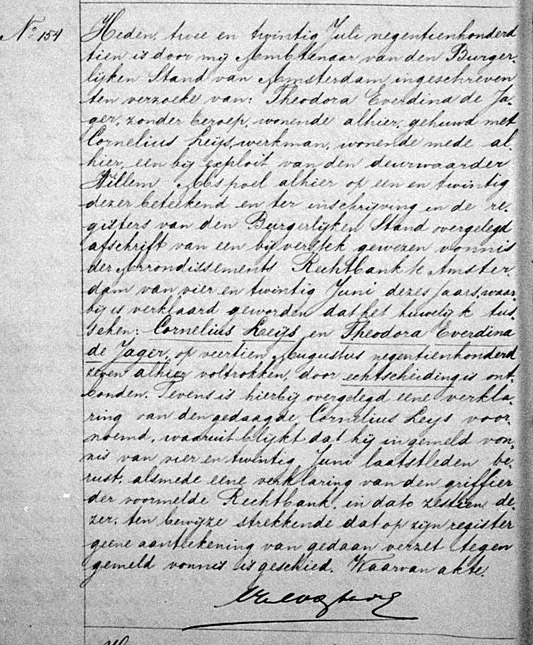 No 154
Heden, twee en twintig Juli negentienhonderd
tien is door mij Ambtenaar van den Burger-
lijken Stand van Amsterdam, ingeschreven
ten verzoeke van: Theodora Everdina de Ja-
ger, zonder beroep, wonende alhier, gehuwd met
Cornelius Leijs, werkman, wonende mede al-
hier, een bij exploit van den deurwaarder
Willem Abspoel alhier op een en twintig
dezer beteekend en ter inschrijving in de re-
gisters van den Burgerlijken Stand overgelegd
afschrift van een bij verstek gewezen vonnis
der Arrondissements Rechtbank te Amster-
dam van vier en twintig Juni dezes jaars, waar-
bij is verklaard geworden dat het huwelijk tus-
schen: Cornelius Leijs en Theodora Everdina
de Jager, op veertien Augustus negentienhonderd
zeven alhier voltrokken, door echtscheiding is ont-
bonden. Tevens is hierbij overgelegd eene verkla-
ring van den gedaagde Cornelius Leijs voor-
noemd, waaruit blijkt dat hij in gemeld von-
nis van vier en twintig Juni laatstleden be-
rust, alsmede eene verklaring van den griffier
der voormelde Rechtbank, in dato zestien de-
zer, ten bewijze strekkende dat op zijn register
geene aanteekening van gedaan verzet tegen
gemeld vonnis is geschied. Waarvan akte.